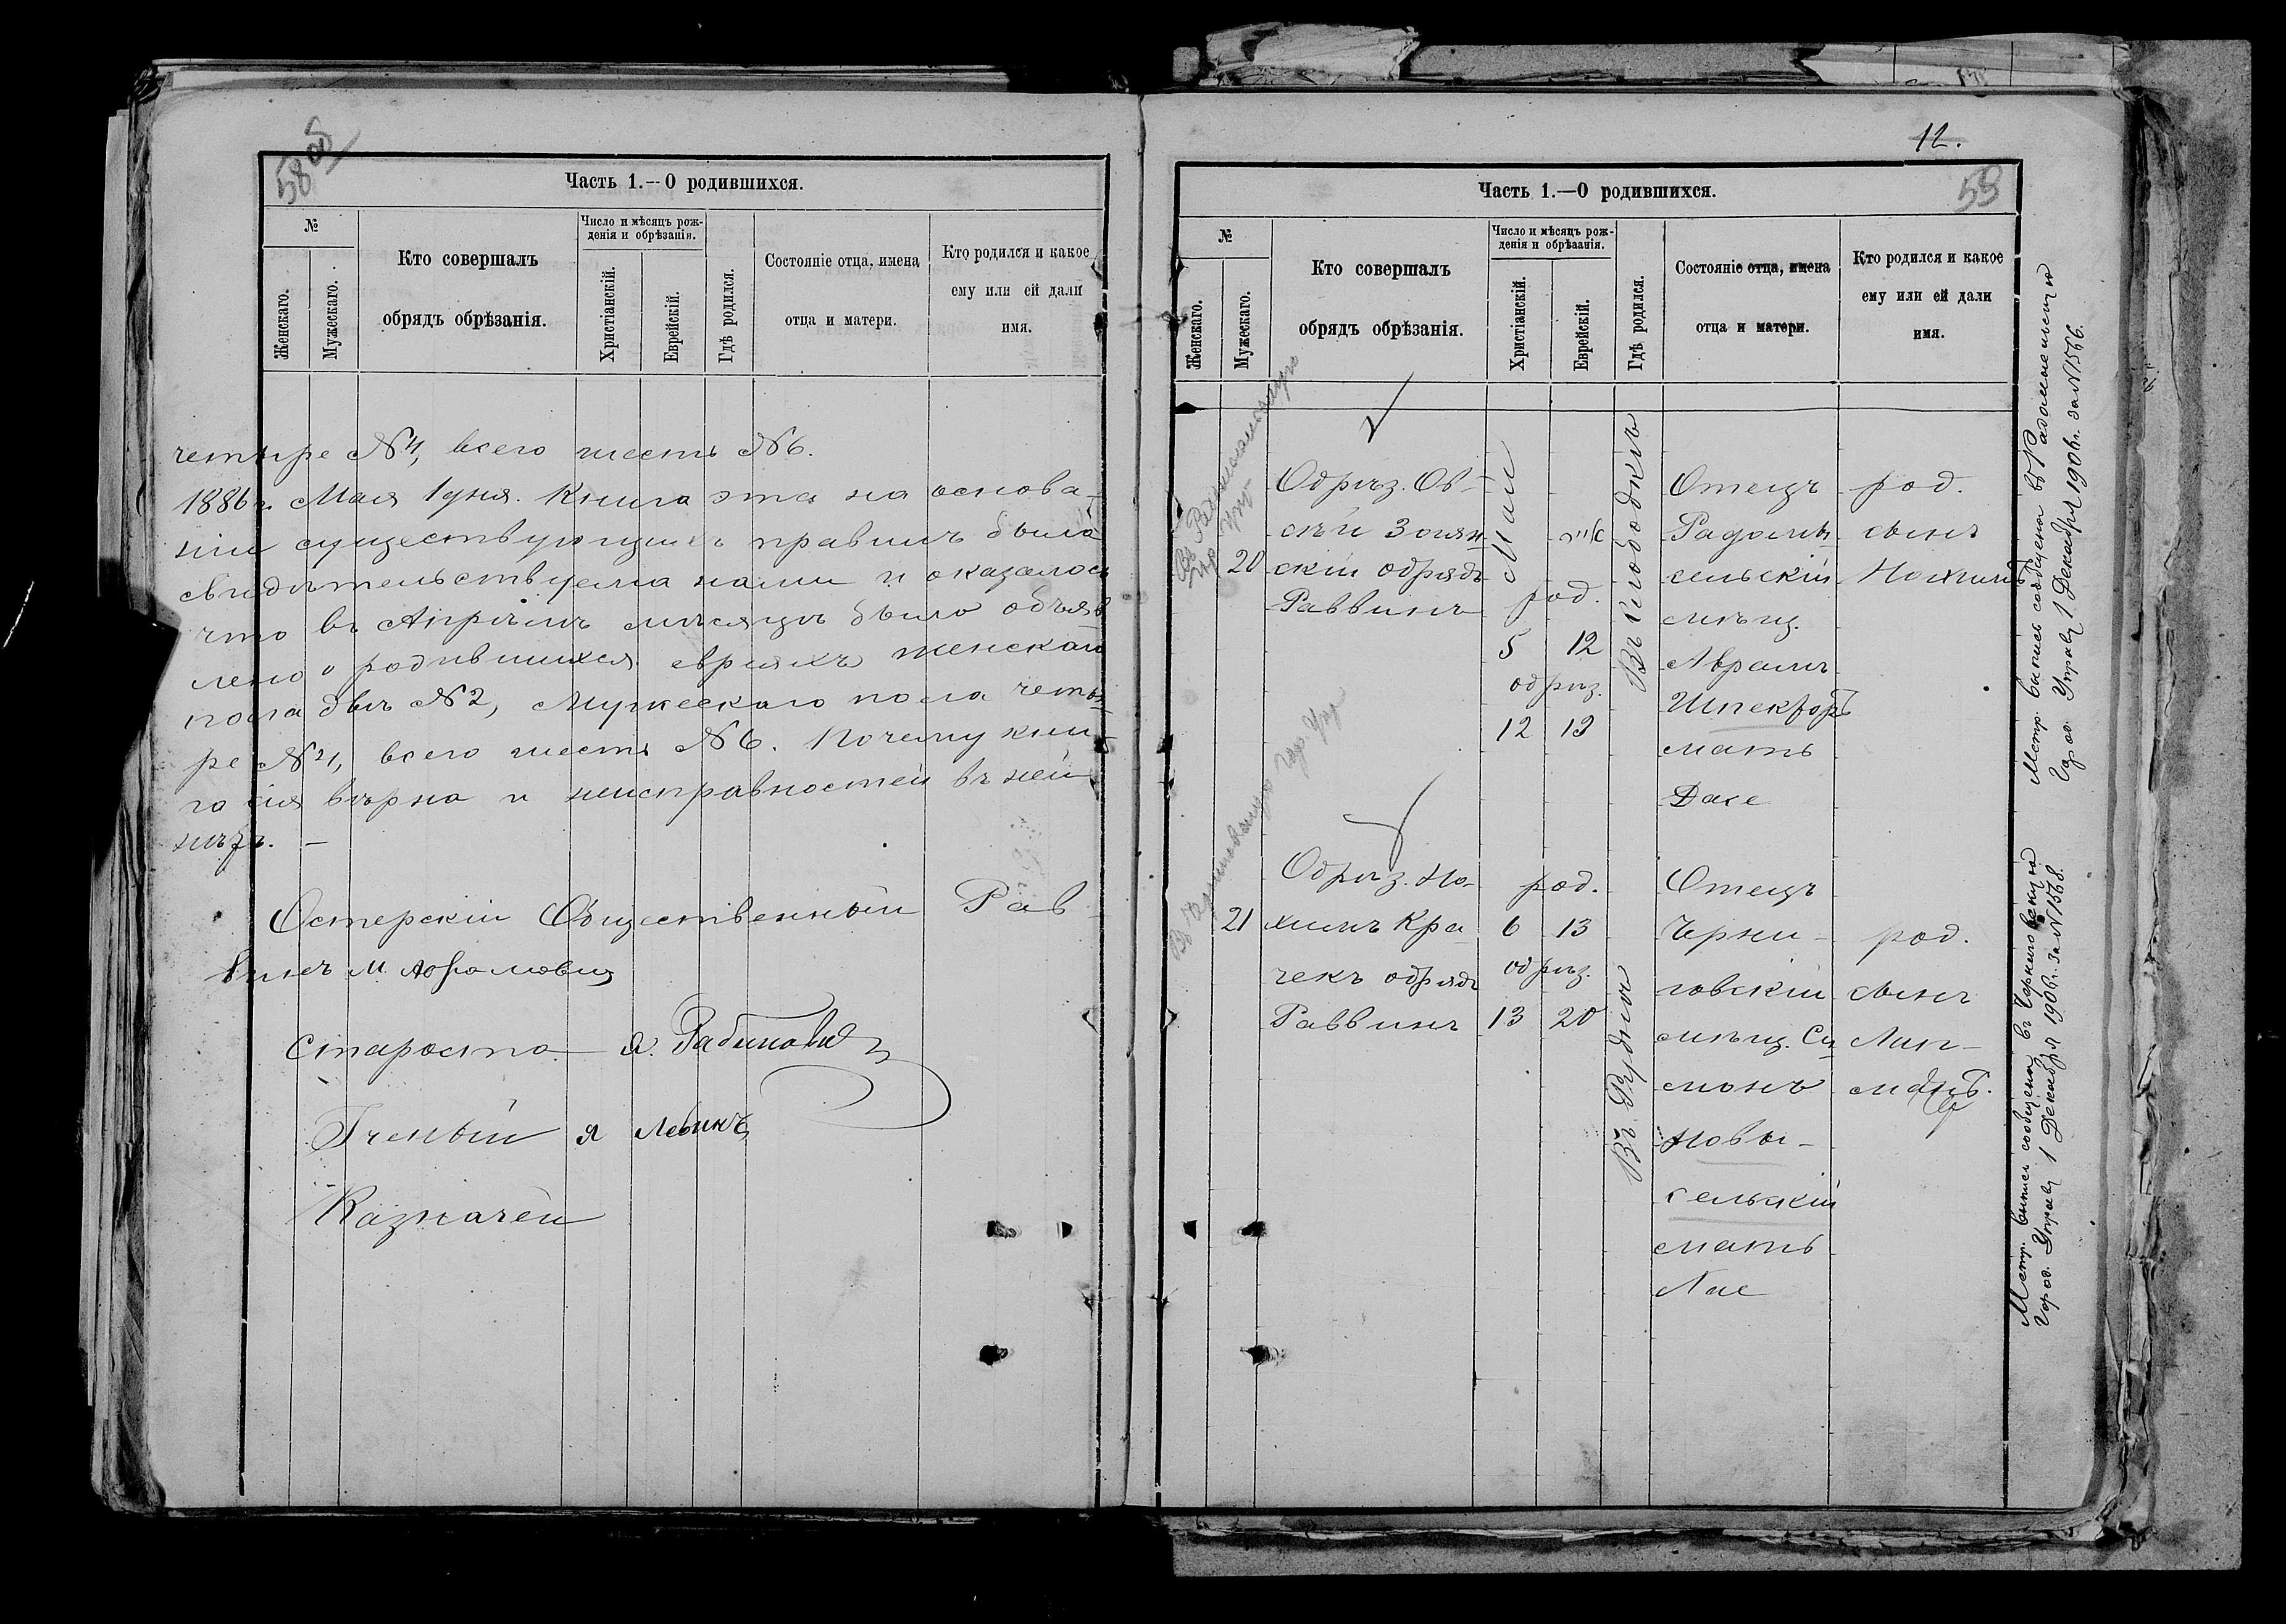 58 об
Часть 1.—О родившихся.
№
Женскаго.
Мужескаго.
Кто совершалъ
обрядъ обрѣзанія.
Число и мѣсяцъ рож-
денія и обрѣзанія.
Христіанскій.
Еврейскій.
Гдѣ родился.
Состояніе отца, имена
отца и матери.
Кто родился и какое
ему или ей дали
имя.
четыре №4, всего шесть №6.
1886 г. Мая 1 дня. Книга эта на основа-
ніи существующихъ правилъ была
свидѣтельствуема нами и оказалось
что въ Апрѣлѣ мѣсяцѣ было объяв
лено о родившихся евреяхъ женскаго
пола двѣ №2, Мужескаго пола четы-
ре №4, всего шесть №6. Почему кни-
га сія вѣрна и неисправностей въ ней
нѣтъ. —
Остерскій Общественный Рав-
винъ М
Староста Я. Рабинович
Ученый Я Левинъ
Казначей
12.
59
Часть 1.—О родившихся.
№
Женскаго.
Мужескаго.
Кто совершалъ
обрядъ обрѣзанія.
Число и мѣсяцъ рож-
денія и обрѣзанія.
Христіанскій.
Еврейскій.
Гдѣ родился.
Состояніе отца, имена
отца и матери.
Кто родился и какое
ему или ей дали
имя.
20
Обрѣз. Ов-
сѣй
скій обрядъ
Раввинъ
Май
род.
5 12
обрѣз.
12 19
Въ Слободкѣ
Отецъ
Радомы-
сельскій
мѣщ.
Абрамъ
Шпекторъ
мать
Дасе
род.
сынъ
Нохимъ
21
Обрѣз. Но-
химъ Кра-
чекъ обрядъ
Раввинъ
род.
6 13
обрѣз.
13 20
Въ Рудня
Отецъ
Черни-
говскій
мѣщ. Си-
монъ
Новы-
сельскій
мать
Хае
род.
сынъ
Лип-
манъ.
Метр. выпись сообщена въ Радомысльскую
Город. Управу 1 Декабря 1906 г. за №1566.
Метр. выпись сообщена въ Черниговскую
Город. Управу 1 Декабря 1906 г. за №1568.